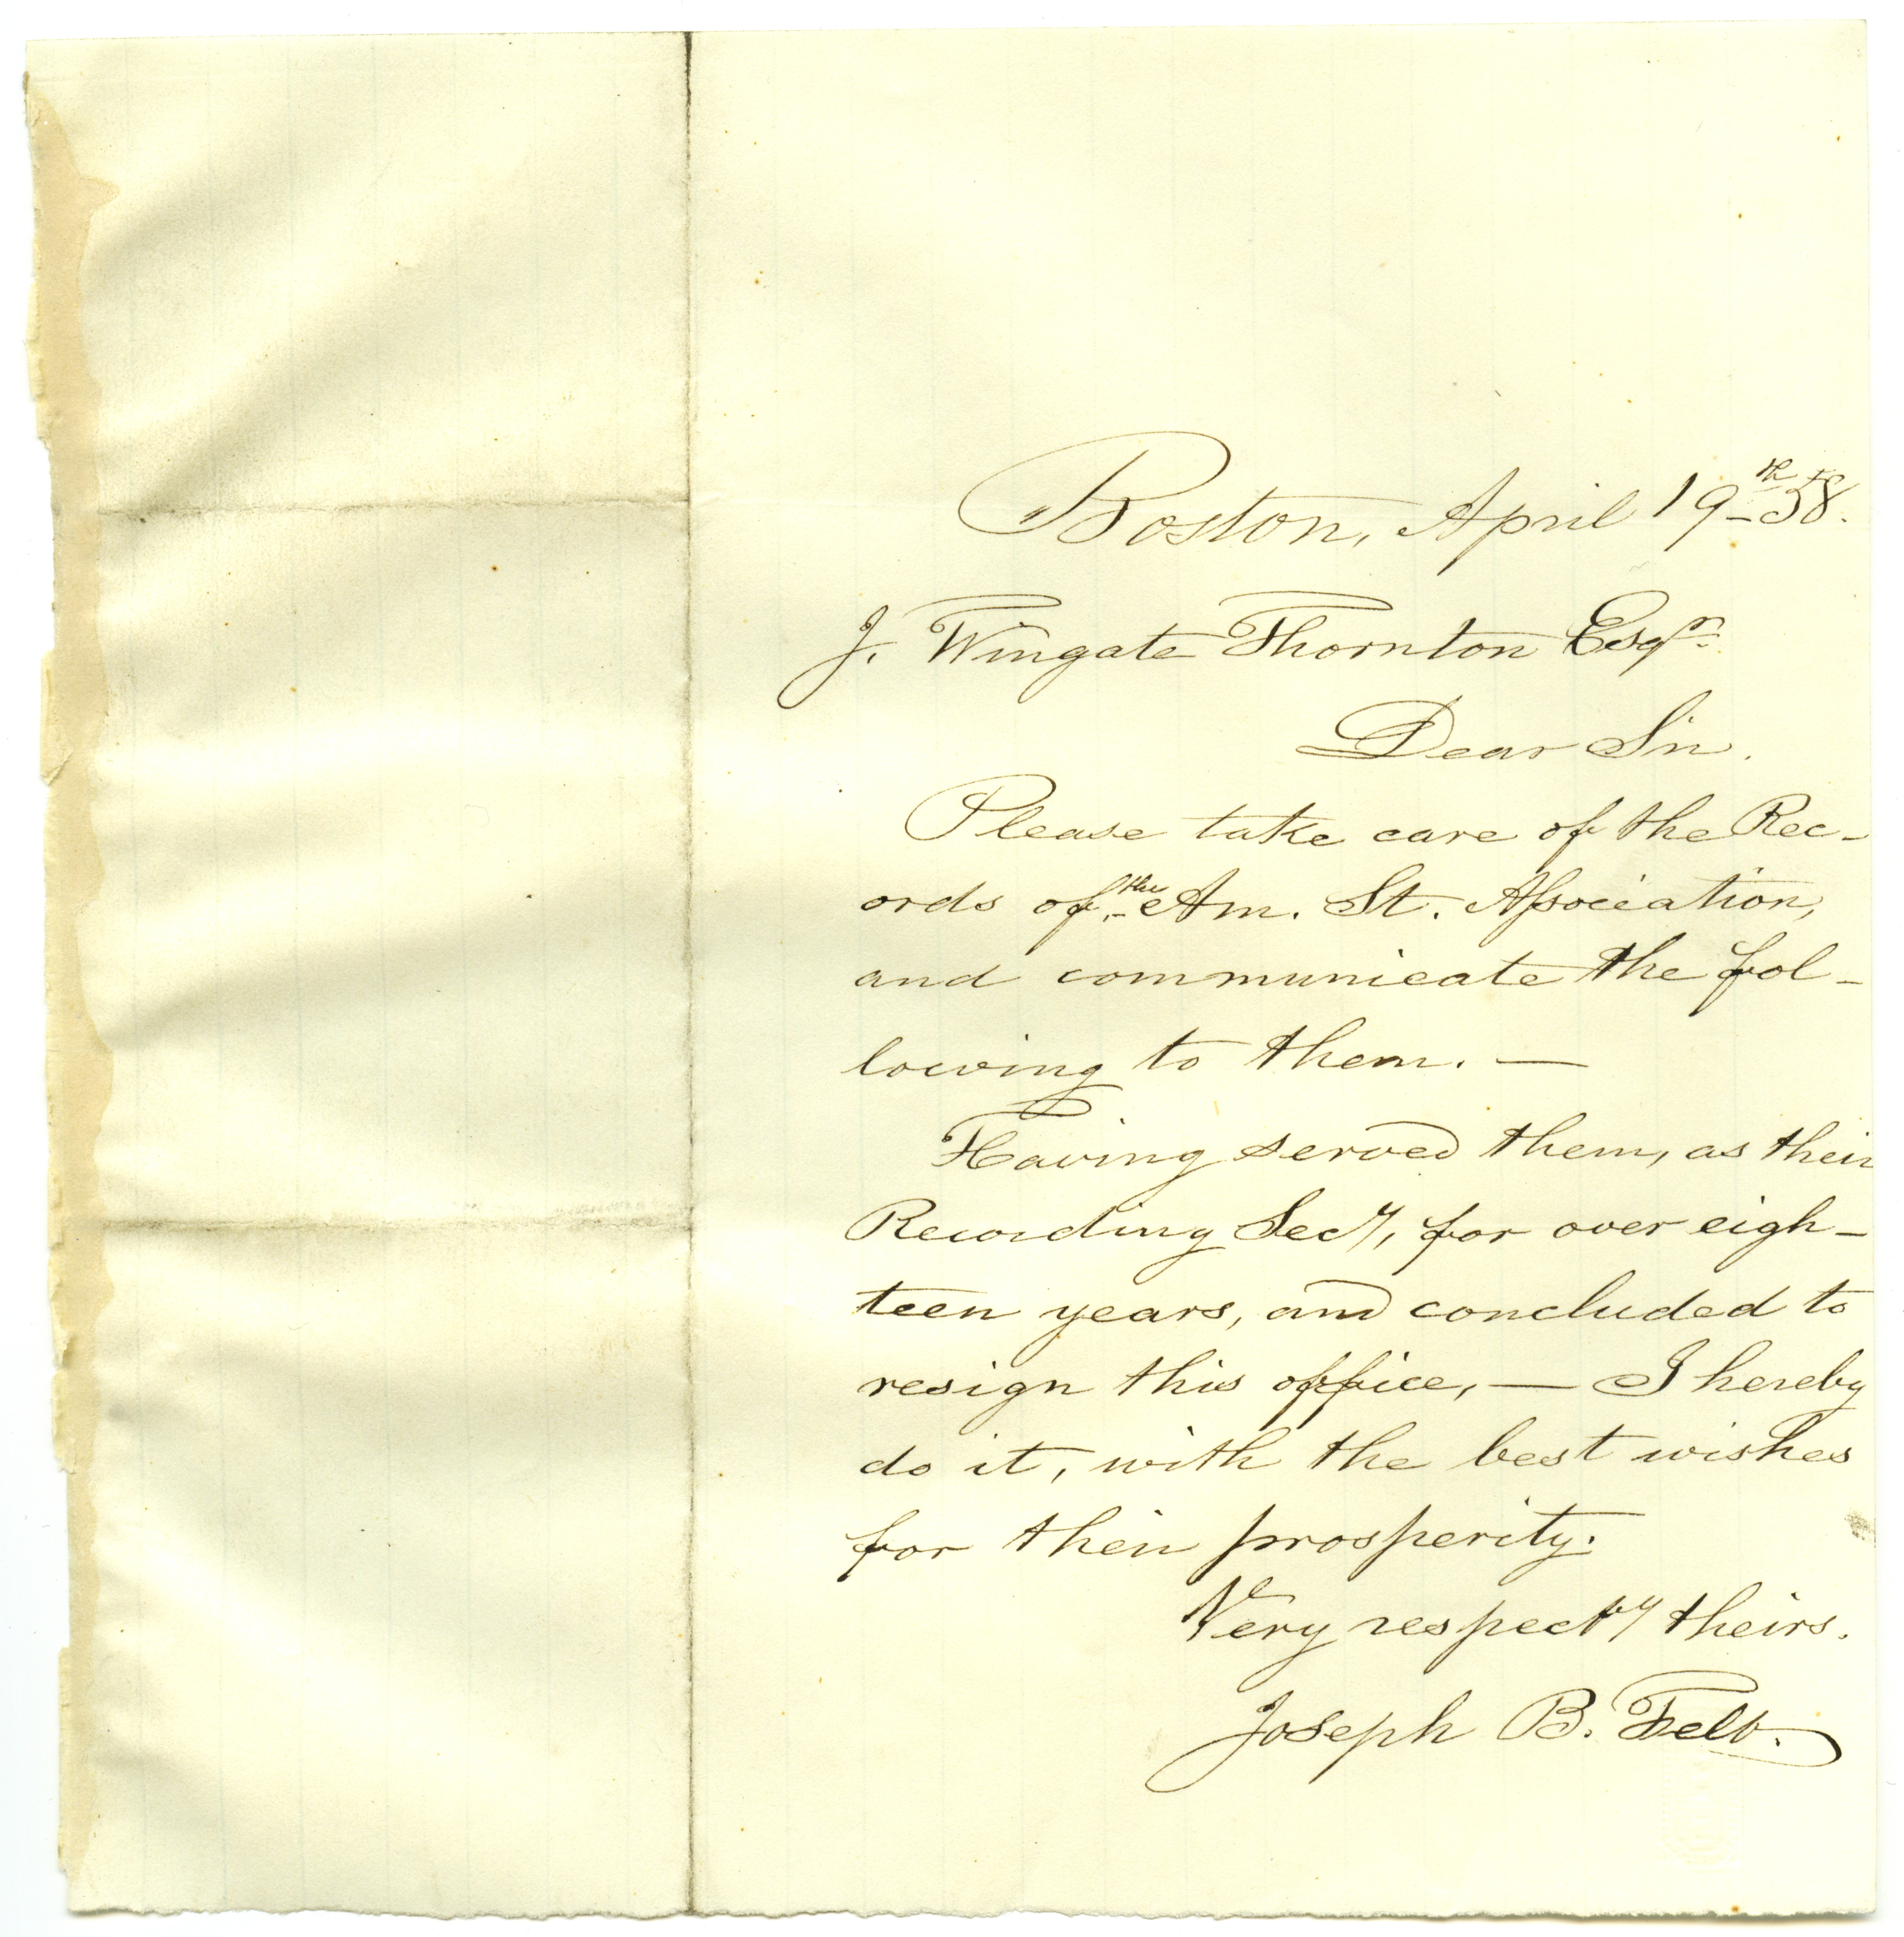 Boston, April 19th 58.
J. Wingate Thornton Esqr.
Dear Sir.
Please take care of the Rec-
ords of the Am. St. Association,
and communicate the fol-
lowing to them. —
Having served them, as their
Recording Secy, for over eigh-
teen years, and concluded to
resign this office, — I hereby
do it, with the best wishes
for their prosperity.
Very respecty theirs.
Joseph B. Felt.